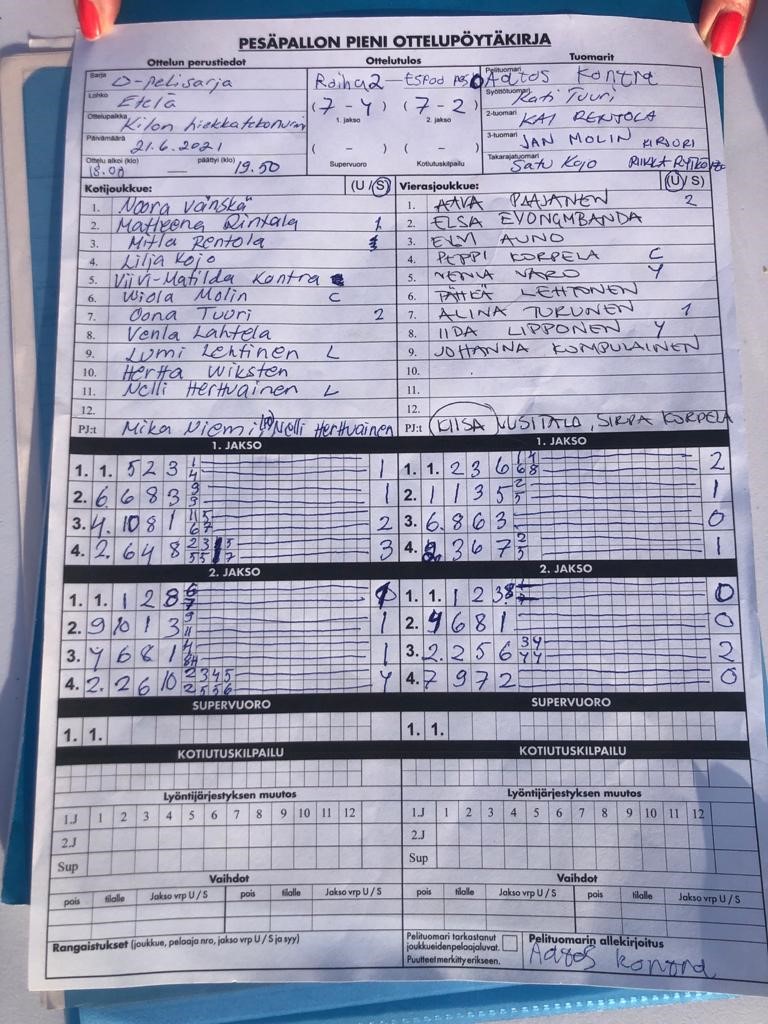 PESÄPALLON PIENI OTTELUPÖYTÄKIRJA
Ottelun perustiedot Ottelutulos Tuomarit
Sarja D-pelisarja Roihu2 - Espoo Pesis Pelituomari Aatos Kontra
Lohko Etelä (7 - 4) (7 - 2) Syöttötuomari Kati Tuuri
Ottelupaikka Kilon hiekkatekonurmi 1. jakso 2. jakso 2-tuomari KAI RENTOLA
Päivämäärä 21.6.2021 ( - ) ( - ) 3-tuomari JAN MOLIN KIRJURI
Ottelu alkoi (klo) 18.00 — päättyi (klo) 19.50 Supervuoro Kotiutuskilpailu Takarajatuomari Satu Kojo RIIKKA
Kotijoukkue: (U / S) Vierasjoukkue: (U / S)
1. Noora Vänskä 1. AAVA PAAJANEN 2
2. Matleena Rintala 1 2. ELSA EVONGMBANDA
3. Mitla Rentola 3. ELVI AUNO
4. Lilja Kojo 4. PEPPI KORPELA C
5. Viivi-Matilda Kontra 5. VENLA VARO Y
6. Wiola Molin C 6. LEHTONEN
7. Oona Tuuri 2 7. ALINA TURUNEN 1
8. Venla Lahtela 8. IIDA LIPPONEN Y
9. Lumi Lehtinen L 9. JOHANNA KUMPULAINEN
10. Hertta Wiksten 10.
11. Nelli Herttuainen L 11.
12. 12.
PJ:t Mika Niemi Nelli Herttuainen PJ:t KIISA UUSITALO, SIRPA KORPELA
1. JAKSO 1. JAKSO
1. 1. 5 2 3 1 4 1 1. 1. 2 3 6 2
2. 6 6 8 3 1 2. 1 1 3 5 2 5 1
3. 4. 10 8 1 2 3. 6. 8 6 3 0
4. 2. 6 4 8 3 4. 3 6 7 2 5 1
2. JAKSO 2. JAKSO
1. 1. 1 2 8 1. 1. 1 2 3 0
2. 9 10 1 3 9 11 1 2. 4 6 8 1 0
3. 4 6 8 1 1 3. 2. 2 5 6 3 4 4 4 2
4. 2. 2 6 10 2 3 4 5 2 5 5 6 4 4. 7 9 7 2 0
SUPERVUORO SUPERVUORO
1. 1. 1. 1.
KOTIUTUSKILPAILU KOTIUTUSKILPAILU
Lyöntijärjestyksen muutos Lyöntijärjestyksen muutos
1.J 1 2 3 4 5 6 7 8 9 10 11 12 1.J 1 2 3 4 5 6 7 8 9 10 11 12
2.J 2.J
Sup Sup
Vaihdot Vaihdot
pois tilalle Jakso vrp U / S pois tilalle Jakso vrp U / S pois tilalle Jakso vrp U / S pois tilalle Jakso vrp U / S
Rangaistukset (joukkue, pelaaja nro, jakso vrp U / S ja syy) Pelituomari tarkastanut Pelituomarin allekirjoitus
joukkueidenpelaajaluvat. Aatos Kontra
Puutteet merkitty erikseen.